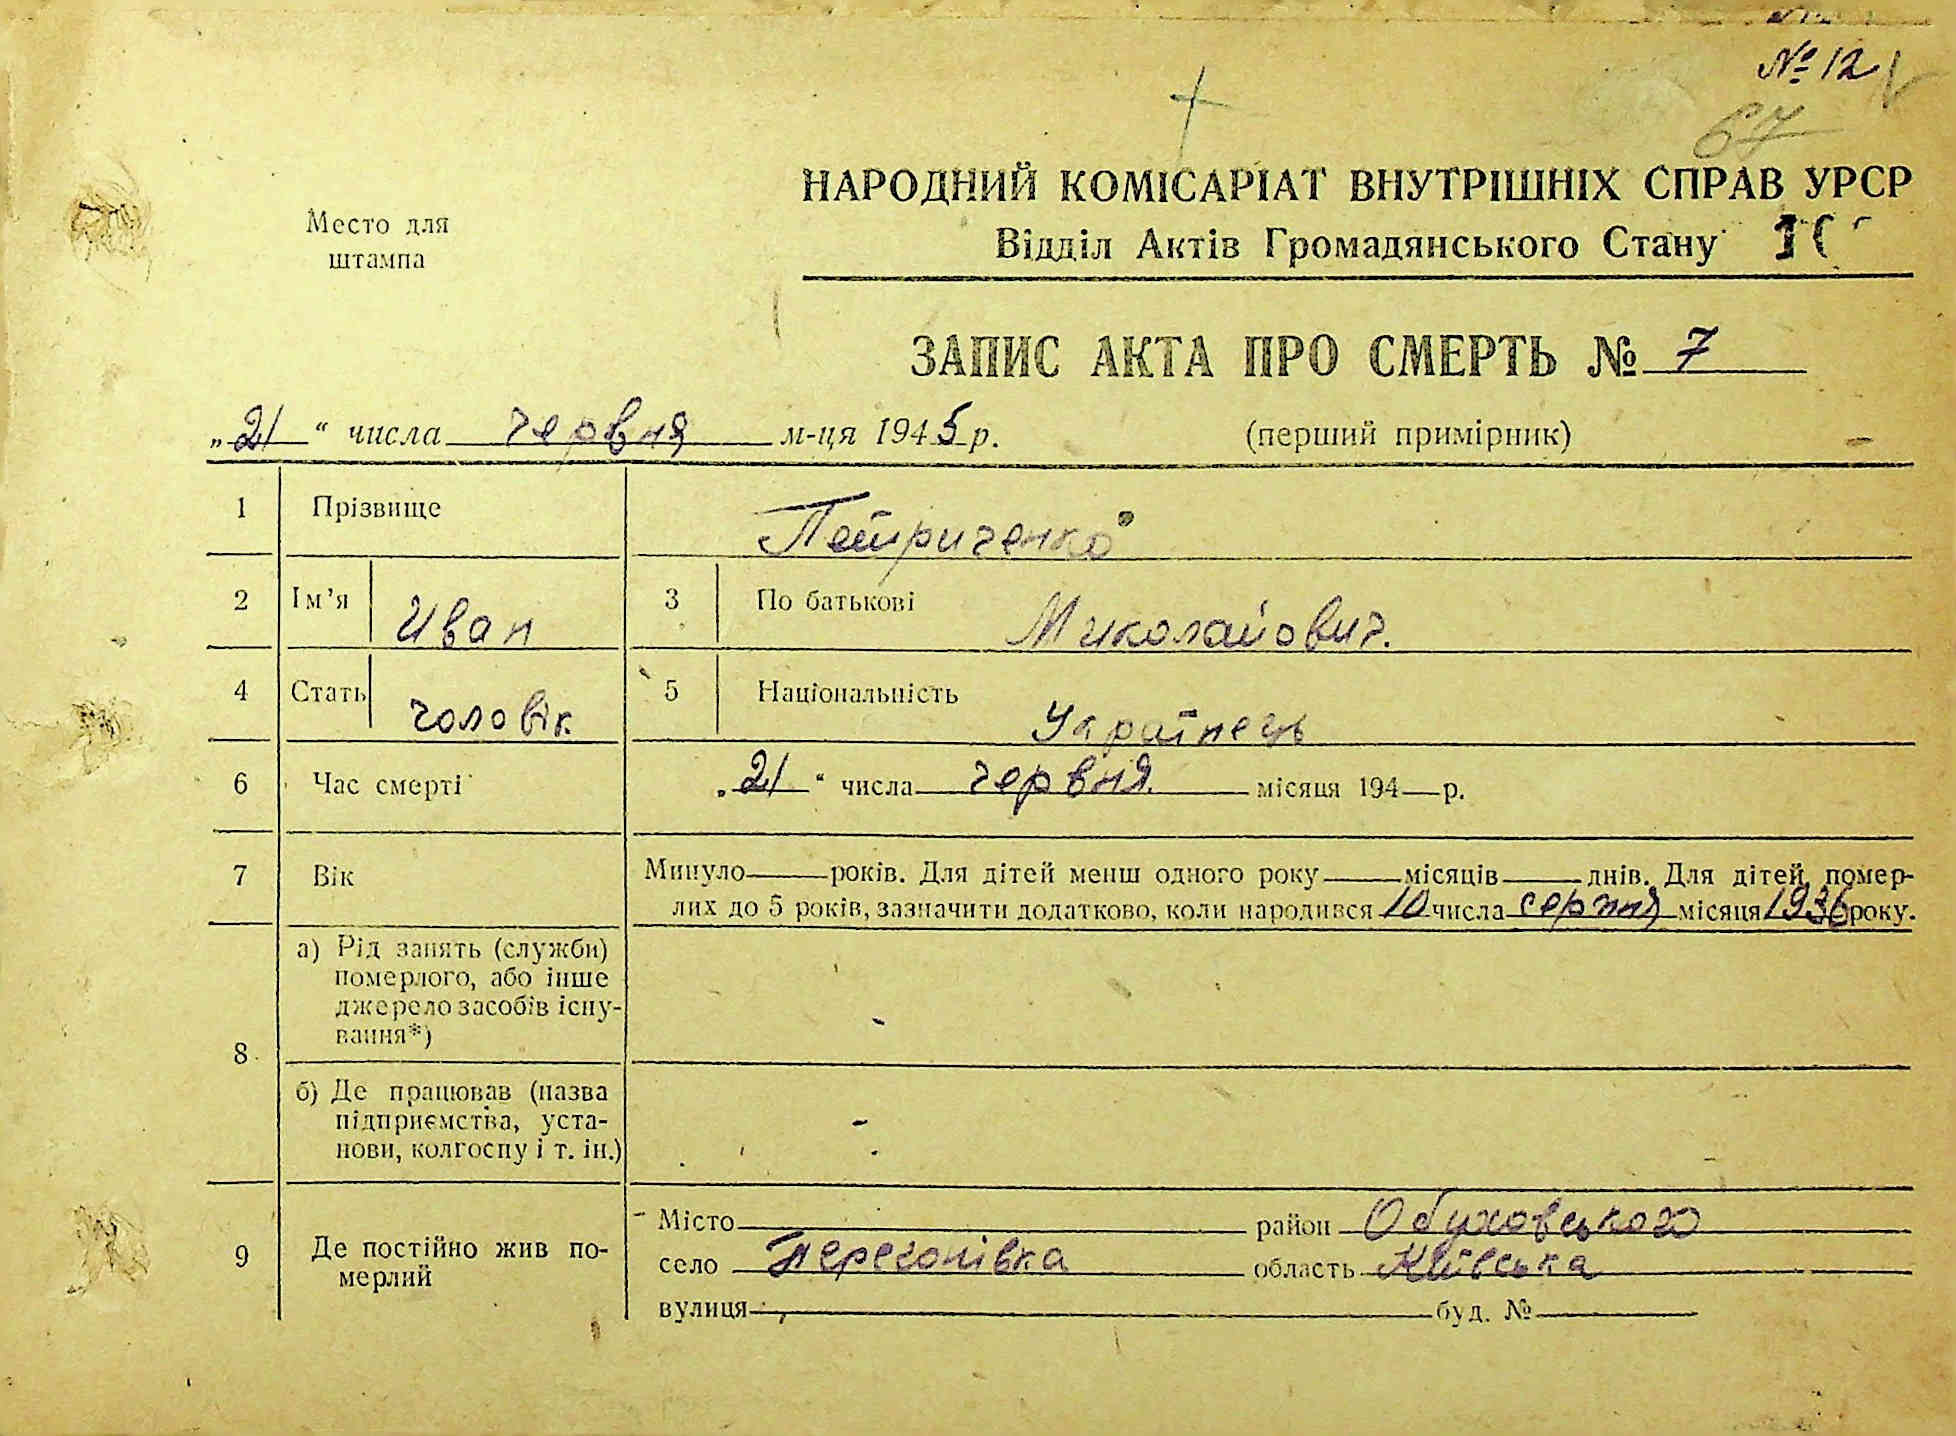 № 12
67
Место для
штампа
НАРОДНИЙ КОМІСАРІАТ ВНУТРІШНІХ СПРАВ УРСР
Відділ Актів Громадянського Стану
ЗАПИС АКТА ПРО СМЕРТЬ № 7
„21“ числа червня м-ця 1945 р. (перший примірник)
1 Прізвище Петриченко
2 Ім’я Иван 3 По батькові Миколайович.
4 Стать чоловік 5 Національність Українець
6 Час смерті „21“ числа червня місяця 194 р.
7 Вік Минуло років. Для дітей менш одного року місяців днів. Для дітей, помер-
лих до 5 років, зазначити додатково, коли народився 10 числа серпня місяця 1936 року.
8 а) Рід занять (служби)
померлого, або інше
джерело засобів існу-
вання*) -
б) Де працював (назва
підприємства, уста-
нови, колгоспу і т. ін.) -
9 Де постійно жив по-
мерлий
Місто район Обуховського
село Перегонівка область Київська
вулиця буд. №